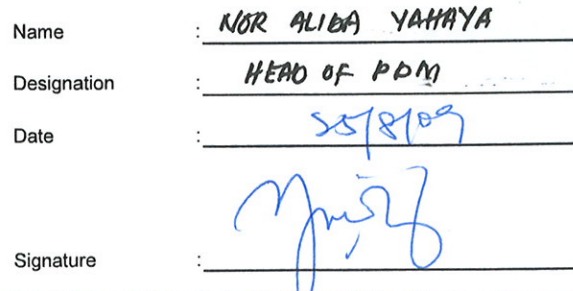 Name : NOR ALIDA YAHAYA
Designation : HEAD OF PDM
Date : 25/8/09
Signature :